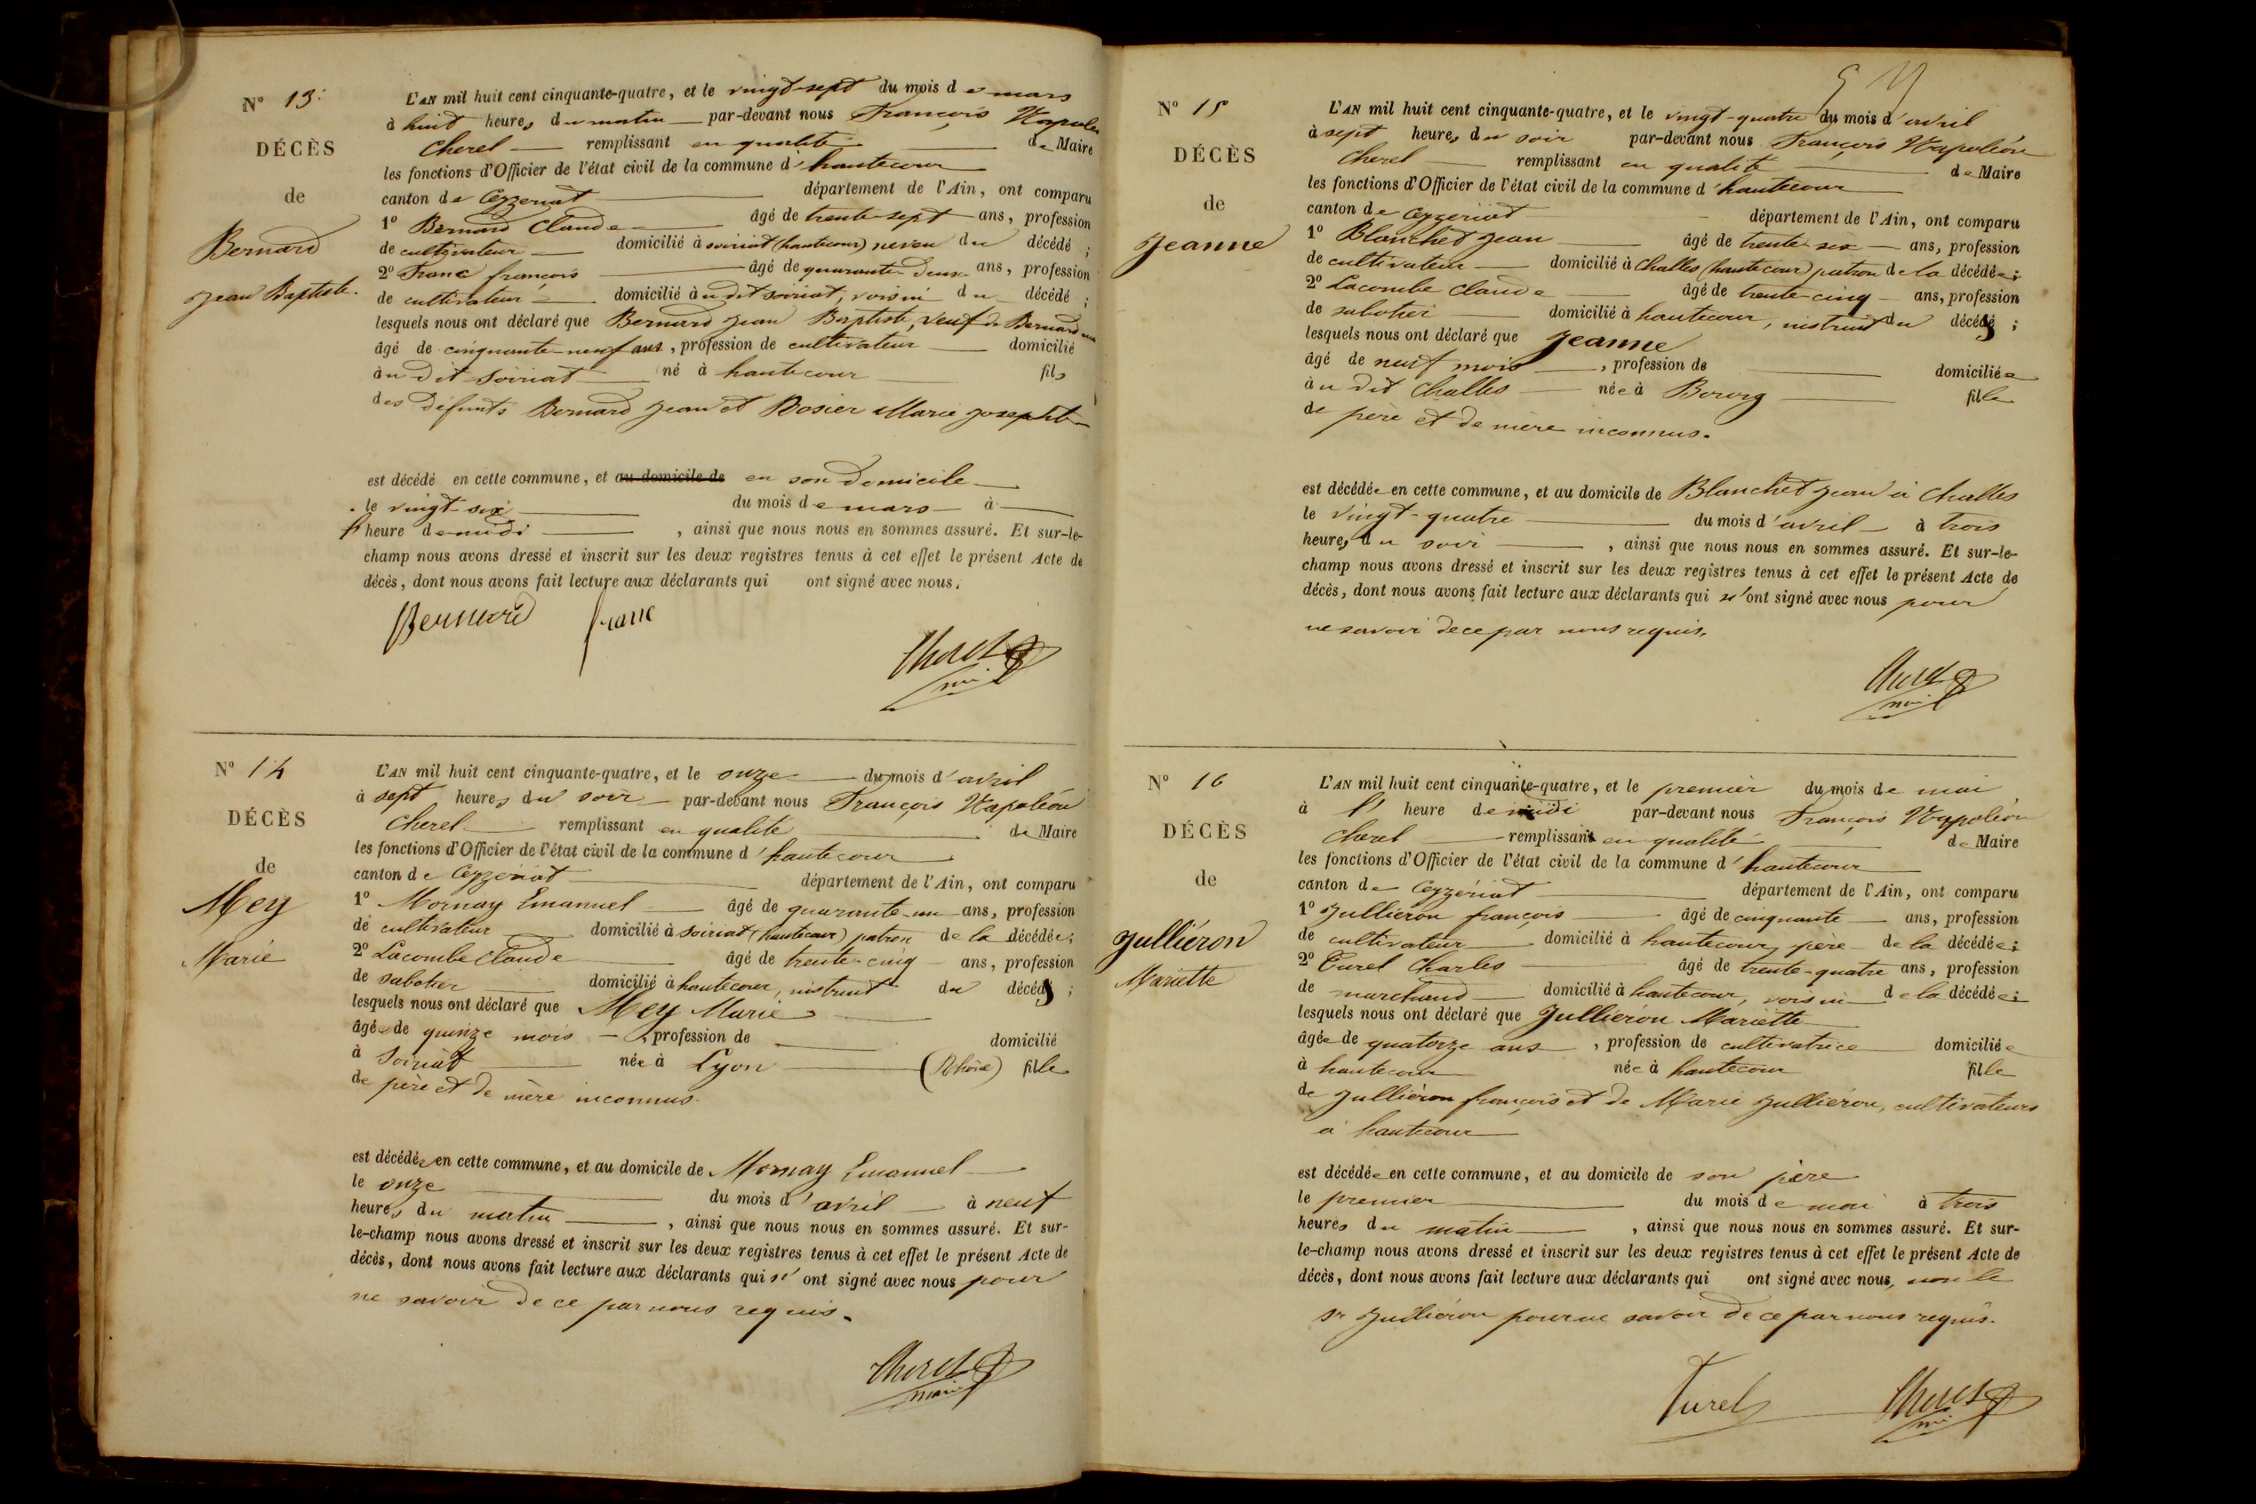 N° 13.
DÉCÈS
de
Bernard
Jean Baptiste.
L'AN mil huit cent cinquante-quatre, et le vingt-sept du mois de mars
à huit heures du matin par-devant nous François
Cherel remplissant en qualité de Maire
les fonctions d'Officier de l'état civil de la commune d'hautecour
canton de Ceyzeriat département de l'Ain, ont comparu
1° Bernard Claude âgé de trente-sept ans, profession
de cultivateur domicilié à soiriat (hautecour) neveu du décédé ;
2° Franc françois âgé de quarante-deux ans, profession
de cultivateur domicilié au dit soiriat, voisin du décédé ;
lesquels nous ont déclaré que Bernard Jean Baptiste, veuf de Bernard
âgé de cinquante-neuf ans, profession de cultivateur domicilié
au dit Soiriat né à hautecour fils
des défunts Bernard Jean et Rosier Marie Josephte
est décédé en cette commune, et au domicile de en son Domicile
le vingt-six du mois de mars à
l' heure de midi, ainsi que nous nous en sommes assuré. Et sur-le-
champ nous avons dressé et inscrit sur les deux registres tenus à cet effet le présent Acte de
décès, dont nous avons fait lecture aux déclarants qui ont signé avec nous.
Bernard franc
Cherel
N° 14
DÉCÈS
de
Mey
Marie
L'AN mil huit cent cinquante-quatre, et le onze du mois d'avril
à sept heures du soir par-devant nous François Napoléon
Cherel remplissant en qualité de Maire
les fonctions d'Officier de l'état civil de la commune d'hautecour
canton de Ceyzériat département de l'Ain, ont comparu
1° Mornay Emanuel âgé de quarante-un ans, profession
de cultivateur domicilié à soiriat (hautecour) patron de la décédée;
2° Lacombe Claude âgé de trente-cinq ans, profession
de sabotier domicilié à hautecour, instruit du décés ;
lesquels nous ont déclaré que Mey Marie
âgée de quinze mois, profession de domicilié
à Soiriat née à Lyon (Rhône) fille
de père et de mère inconnus.
est décédée en cette commune, et au domicile de Mornay Emanuel
le onze du mois d'avril à neuf
heures du matin, ainsi que nous nous en sommes assuré. Et sur-
le-champ nous avons dressé et inscrit sur les deux registres tenus à cet effet le présent Acte de
décès, dont nous avons fait lecture aux déclarants qui n'ont signé avec nous pour
ne savoir de ce par nous requis.
Cherel
maire
N° 15
DÉCÈS
de
Jeanne
L'AN mil huit cent cinquante-quatre, et le vingt-quatre du mois d'avril
à sept heures du soir par-devant nous François Napoléon
Cherel remplissant en qualité de Maire
les fonctions d'Officier de l'état civil de la commune d'hautecour
canton de Ceyzeriat département de l'Ain, ont comparu
1° Blanchet Jean âgé de trente-six ans, profession
de cultivateur domicilié à Challes (hautecour) patron de la décédée;
2° Lacombe Claude âgé de trente-cinq ans, profession
de sabotier domicilié à hautecour, instruit du décés ;
lesquels nous ont déclaré que Jeanne
âgé de neuf mois, profession de domiciliée
au dit Challes née à Bourg fille
de père et de mère inconnus.
est décédée en cette commune, et au domicile de Blanchet Jean à Challes
le vingt-quatre du mois d'avril à trois
heures du soir, ainsi que nous nous en sommes assuré. Et sur-le-
champ nous avons dressé et inscrit sur les deux registres tenus à cet effet le présent Acte de
décès, dont nous avons fait lecture aux déclarants qui n'ont signé avec nous pour
ne savoir de ce par nous requis.
Cherel
N° 16
DÉCÈS
de
Jullieron
Mariette
L'AN mil huit cent cinquante-quatre, et le premier du mois de mai
à l' heure de midi par-devant nous François Napoléon
Cherel remplissant en qualité de Maire
les fonctions d'Officier de l'état civil de la commune d'hautecour
canton de Ceyzériat département de l'Ain, ont comparu
1° Jullieron françois âgé de cinquante ans, profession
de cultivateur domicilié à hautecour, père de la décédée;
2° Turel Charles âgé de trente-quatre ans, profession
de marchand domicilié à hautecour, voisin de la décédée;
lesquels nous ont déclaré que Jullieron Mariette
âgée de quatorze ans, profession de cultivatrice domiciliée
à hautecour née à hautecour fille
de Jullieron françois et de Marie Jullieron, cultivateurs
à hautecour
est décédée en cette commune, et au domicile de son père
le premier du mois de mai à trois
heures du matin, ainsi que nous nous en sommes assuré. Et sur-
le-champ nous avons dressé et inscrit sur les deux registres tenus à cet effet le présent Acte de
décès, dont nous avons fait lecture aux déclarants qui ont signé avec nous, non le
sr Jullieron pour ne savoir de ce par nous requis.
Turel Cherel